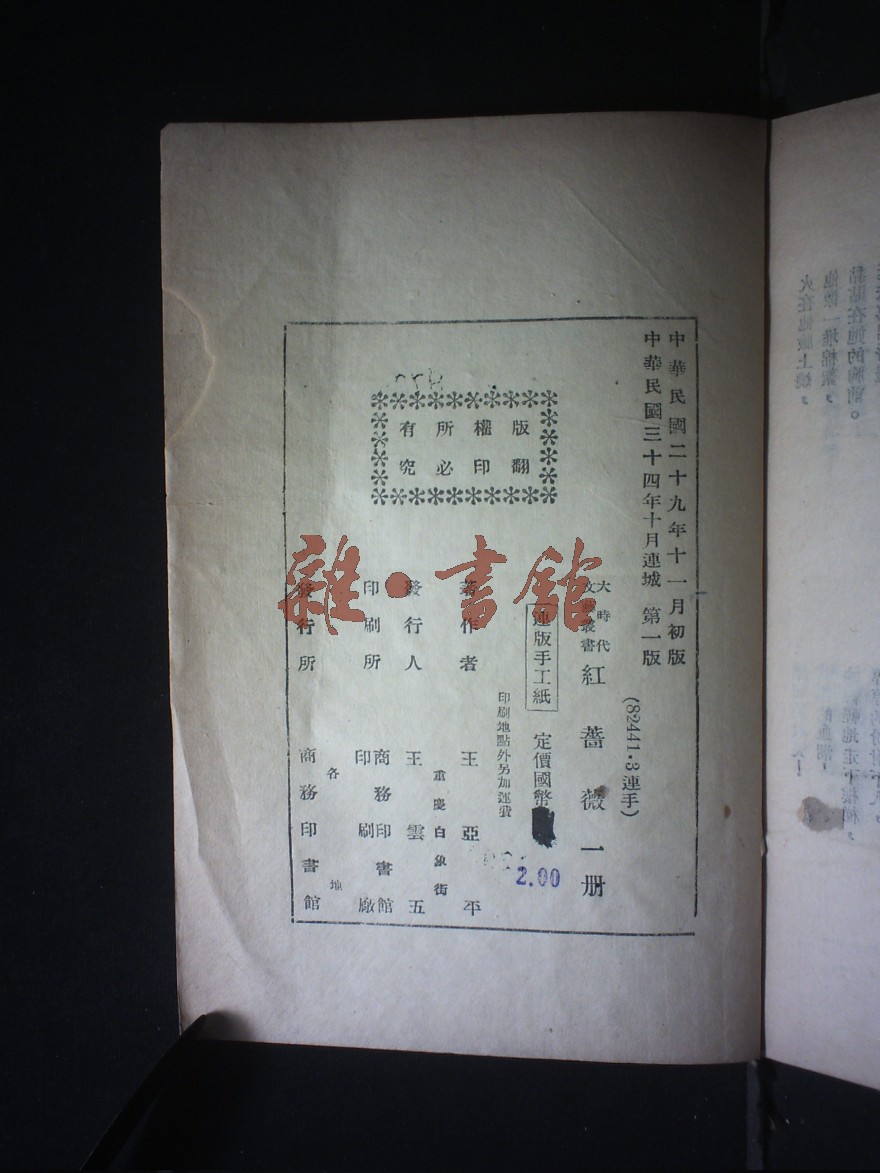 中華民國二十九年十一月初版
中華民國三十四年十月連城第一版
(82441·3連手)
大時代
文藝叢書 紅薔薇一册
連版手工紙 定價國幣
2.00
印刷地點外另加運費
著作者 王亞平
重慶白象街
發行人 王雲五
印刷所 商務印書館
印刷廠
發行所 各地
商務印書館
版權所有
翻印必究
雜·書館
黏貼在她的胸前。
火在他臉上燒，